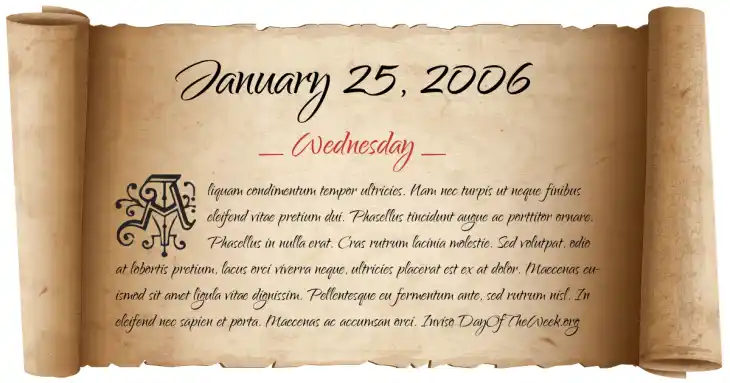 January 25, 2006
_ Wednesday _
Aliquam condimentum tempor ultricies. Nam nec turpis ut neque finibus
eleifend vitae pretium dui. Phasellus tincidunt augue ac porttitor ornare.
Phasellus in nulla erat. Cras rutrum lacinia molestie. Sed volutpat, odio
at lobortis pretium, lacus orci viverra neque, ultricies placerat est ex at dolor. Maecenas eu-
ismod sit amet ligula vitae dignissim. Pellentesque eu fermentum ante, sed rutrum nisl. In
eleifend nec sapien et porta. Maecenas ac accumsan orci. Inviso DayOfTheWeek.org